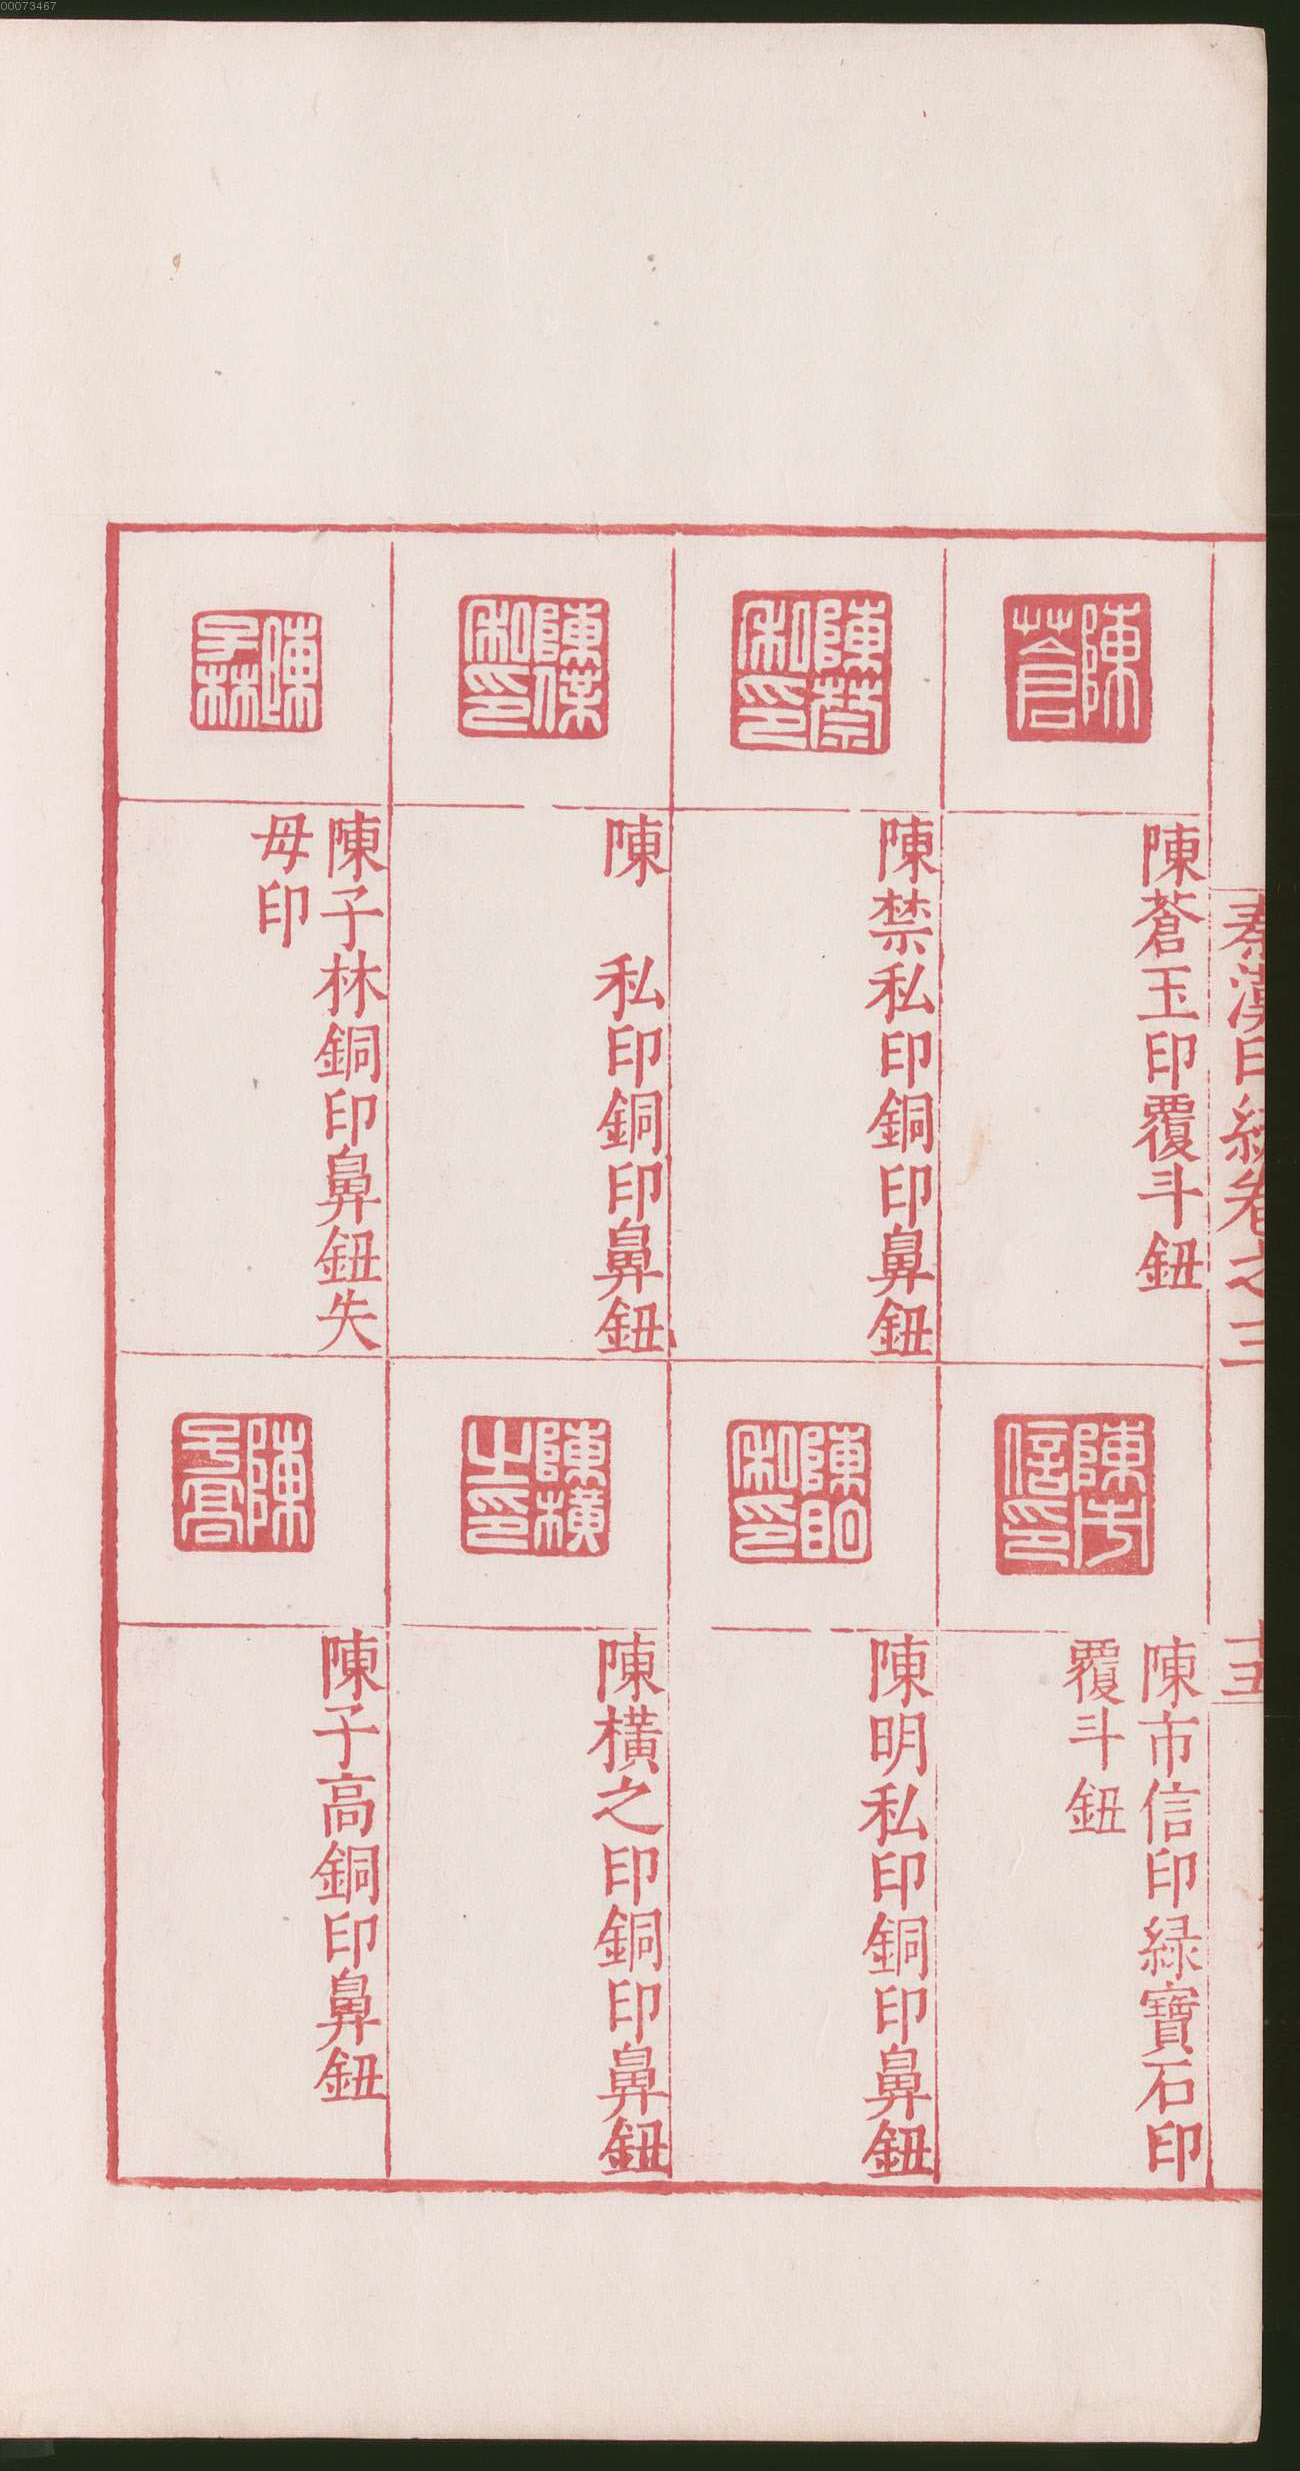 00073467
秦漢印統卷之三
十五
陳蒼
陳蒼玉印覆斗鈕
陳市信印
陳市信印緑寶石印
覆斗鈕
陳禁私印
陳禁私印銅印鼻鈕
陳明私印
陳明私印銅印鼻鈕
陳 私印
陳 私印銅印鼻鈕
陳橫之印
陳橫之印銅印鼻鈕
陳子林
陳子林銅印鼻鈕失
母印
陳子高
陳子高銅印鼻鈕